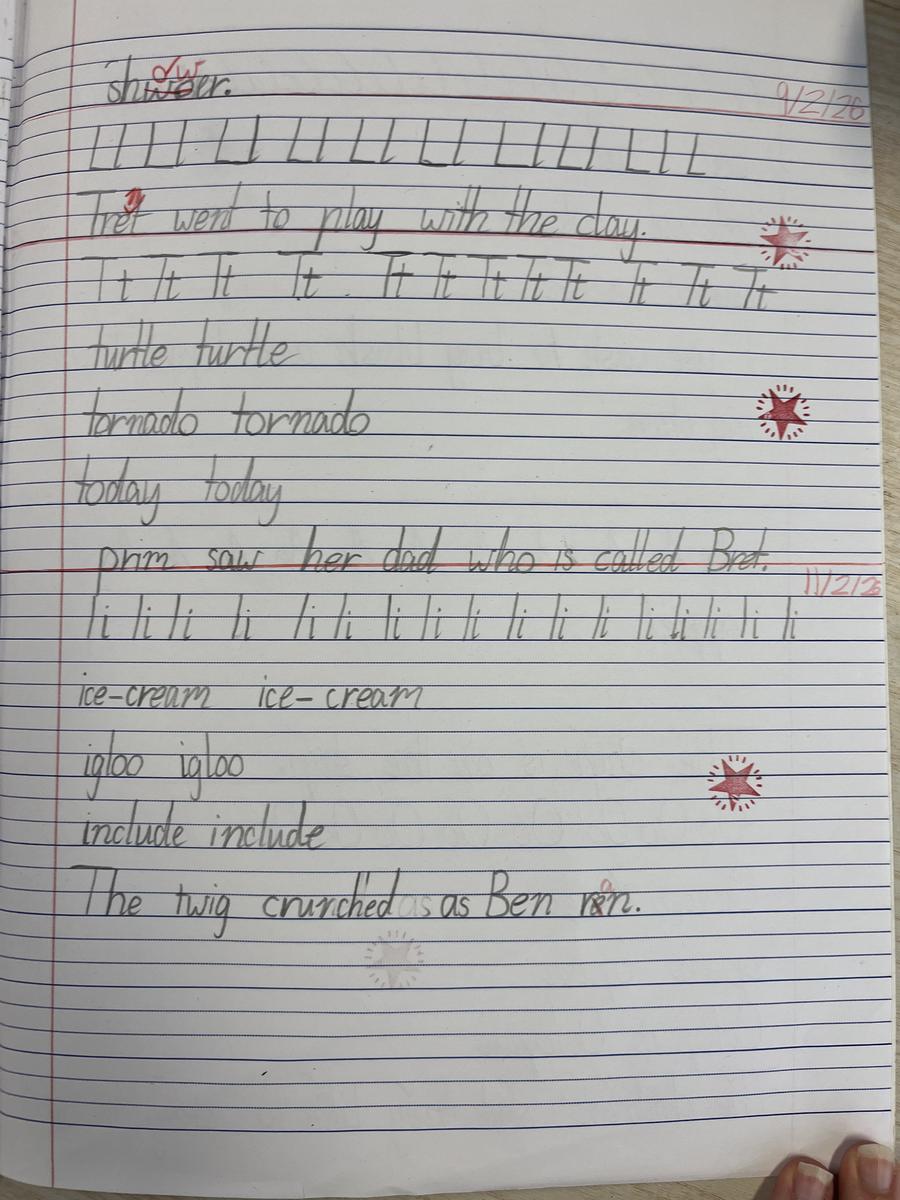 shwoer. ow
9/2/26
Ll Ll Ll Ll Ll Ll Ll Ll Ll L
Tret went to play with the clay.
Tt Tt Tt Tt Tt Tt Tt Tt Tt Tt Tt Tt
turtle turtle
tornado tornado
today today
prim saw her dad who is called Bret.
11/2/26
Ii Ii Ii Ii Ii Ii Ii Ii Ii Ii Ii Ii Ii Ii Ii Ii Ii
ice-cream ice-cream
igloo igloo
include include
The twig crunched as as Ben ran.